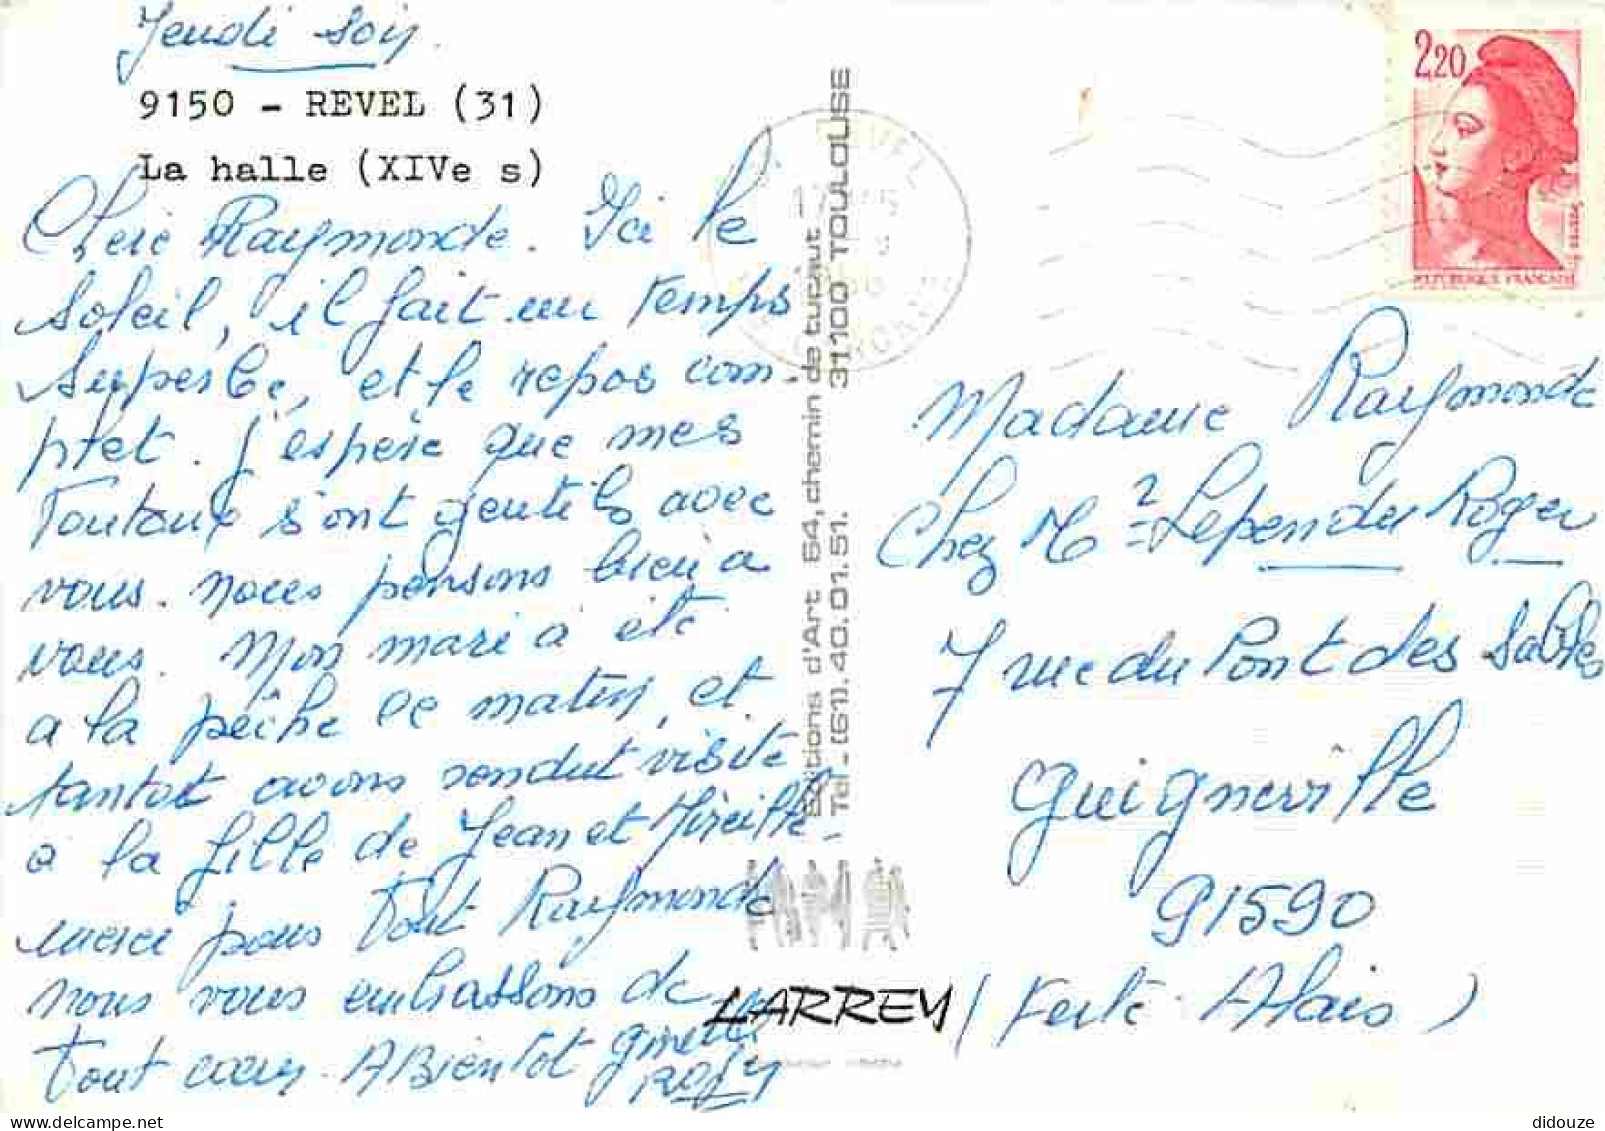 Jeudi soir.
9150 - REVEL (31)
La halle (XIVe s)
Chere Raymonde. Ici le
soleil, il fait un temps
superbe, et le repos com-
plet. J'espere que mes
Toutous sont gentils avec
vous. nous pensons bien a
vous. Mon mari a été
a la pêche ce matin, et
tantot avons rendut visite
a la fille de Jean et Mireille -
merci pour tout Raymonde
nous vous embrassons de
tout coeur. A Bientot Ginette
Roky
Editions d'Art 64, chemin de tucaut 31100 TOULOUSE
Tél. - (61). 40.01.51.
LARREY
2,20
REPUBLIQUE FRANÇAISE
REVEL
Madame Raymonde
Chez Mr Lependu Roger
7 rue du Pont des Sables
Guigneville
91590
(Ferté-Alais)
didouze